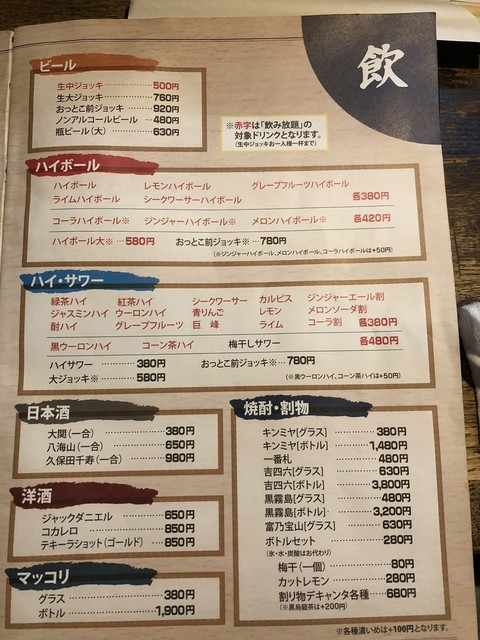 飲
ビール
生中ジョッキ 500円
生大ジョッキ 760円
おっとこ前ジョッキ 920円
ノンアルコールビール 480円
瓶ビール(大) 630円
※赤字は「飲み放題」の
対象ドリンクとなります。
(生中ジョッキお一人様一杯まで)
ハイボール
ハイボール レモンハイボール グレープフルーツハイボール
ライムハイボール シークワーサーハイボール 各380円
コーラハイボール※ ジンジャーハイボール※ メロンハイボール※ 各420円
ハイボール大※ … 580円 おっとこ前ジョッキ※ … 780円
(※ジンジャーハイボール、メロンハイボール、コーラハイボールは+50円)
ハイ・サワー
緑茶ハイ 紅茶ハイ シークワーサー カルピス ジンジャーエール割
ジャスミンハイ ウーロンハイ 青りんご レモン メロンソーダ割
酎ハイ グレープフルーツ 巨峰 ライム コーラ割 各380円
黒ウーロンハイ コーン茶ハイ 梅干しサワー 各480円
ハイサワー 380円 おっとこ前ジョッキ※ … 780円
大ジョッキ※ 580円 (※黒ウーロンハイ、コーン茶ハイは+50円)
日本酒
大関(一合) 380円
八海山(一合) 650円
久保田千寿(一合) 980円
洋酒
ジャックダニエル 650円
コカレロ 850円
テキーラショット(ゴールド) 850円
マッコリ
グラス 380円
ボトル 1,900円
焼酎・割物
キンミヤ[グラス] 380円
キンミヤ[ボトル] 1,480円
一番札 480円
吉四六[グラス] 630円
吉四六[ボトル] 3,800円
黒霧島[グラス] 480円
黒霧島[ボトル] 3,200円
富乃宝山[グラス] 630円
ボトルセット 280円
(氷・水・炭酸はお代わり)
梅干(一個) 80円
カットレモン 280円
割り物デキャンタ各種 680円
(※黒烏龍茶は+200円)
※各種濃いめは+100円となります。